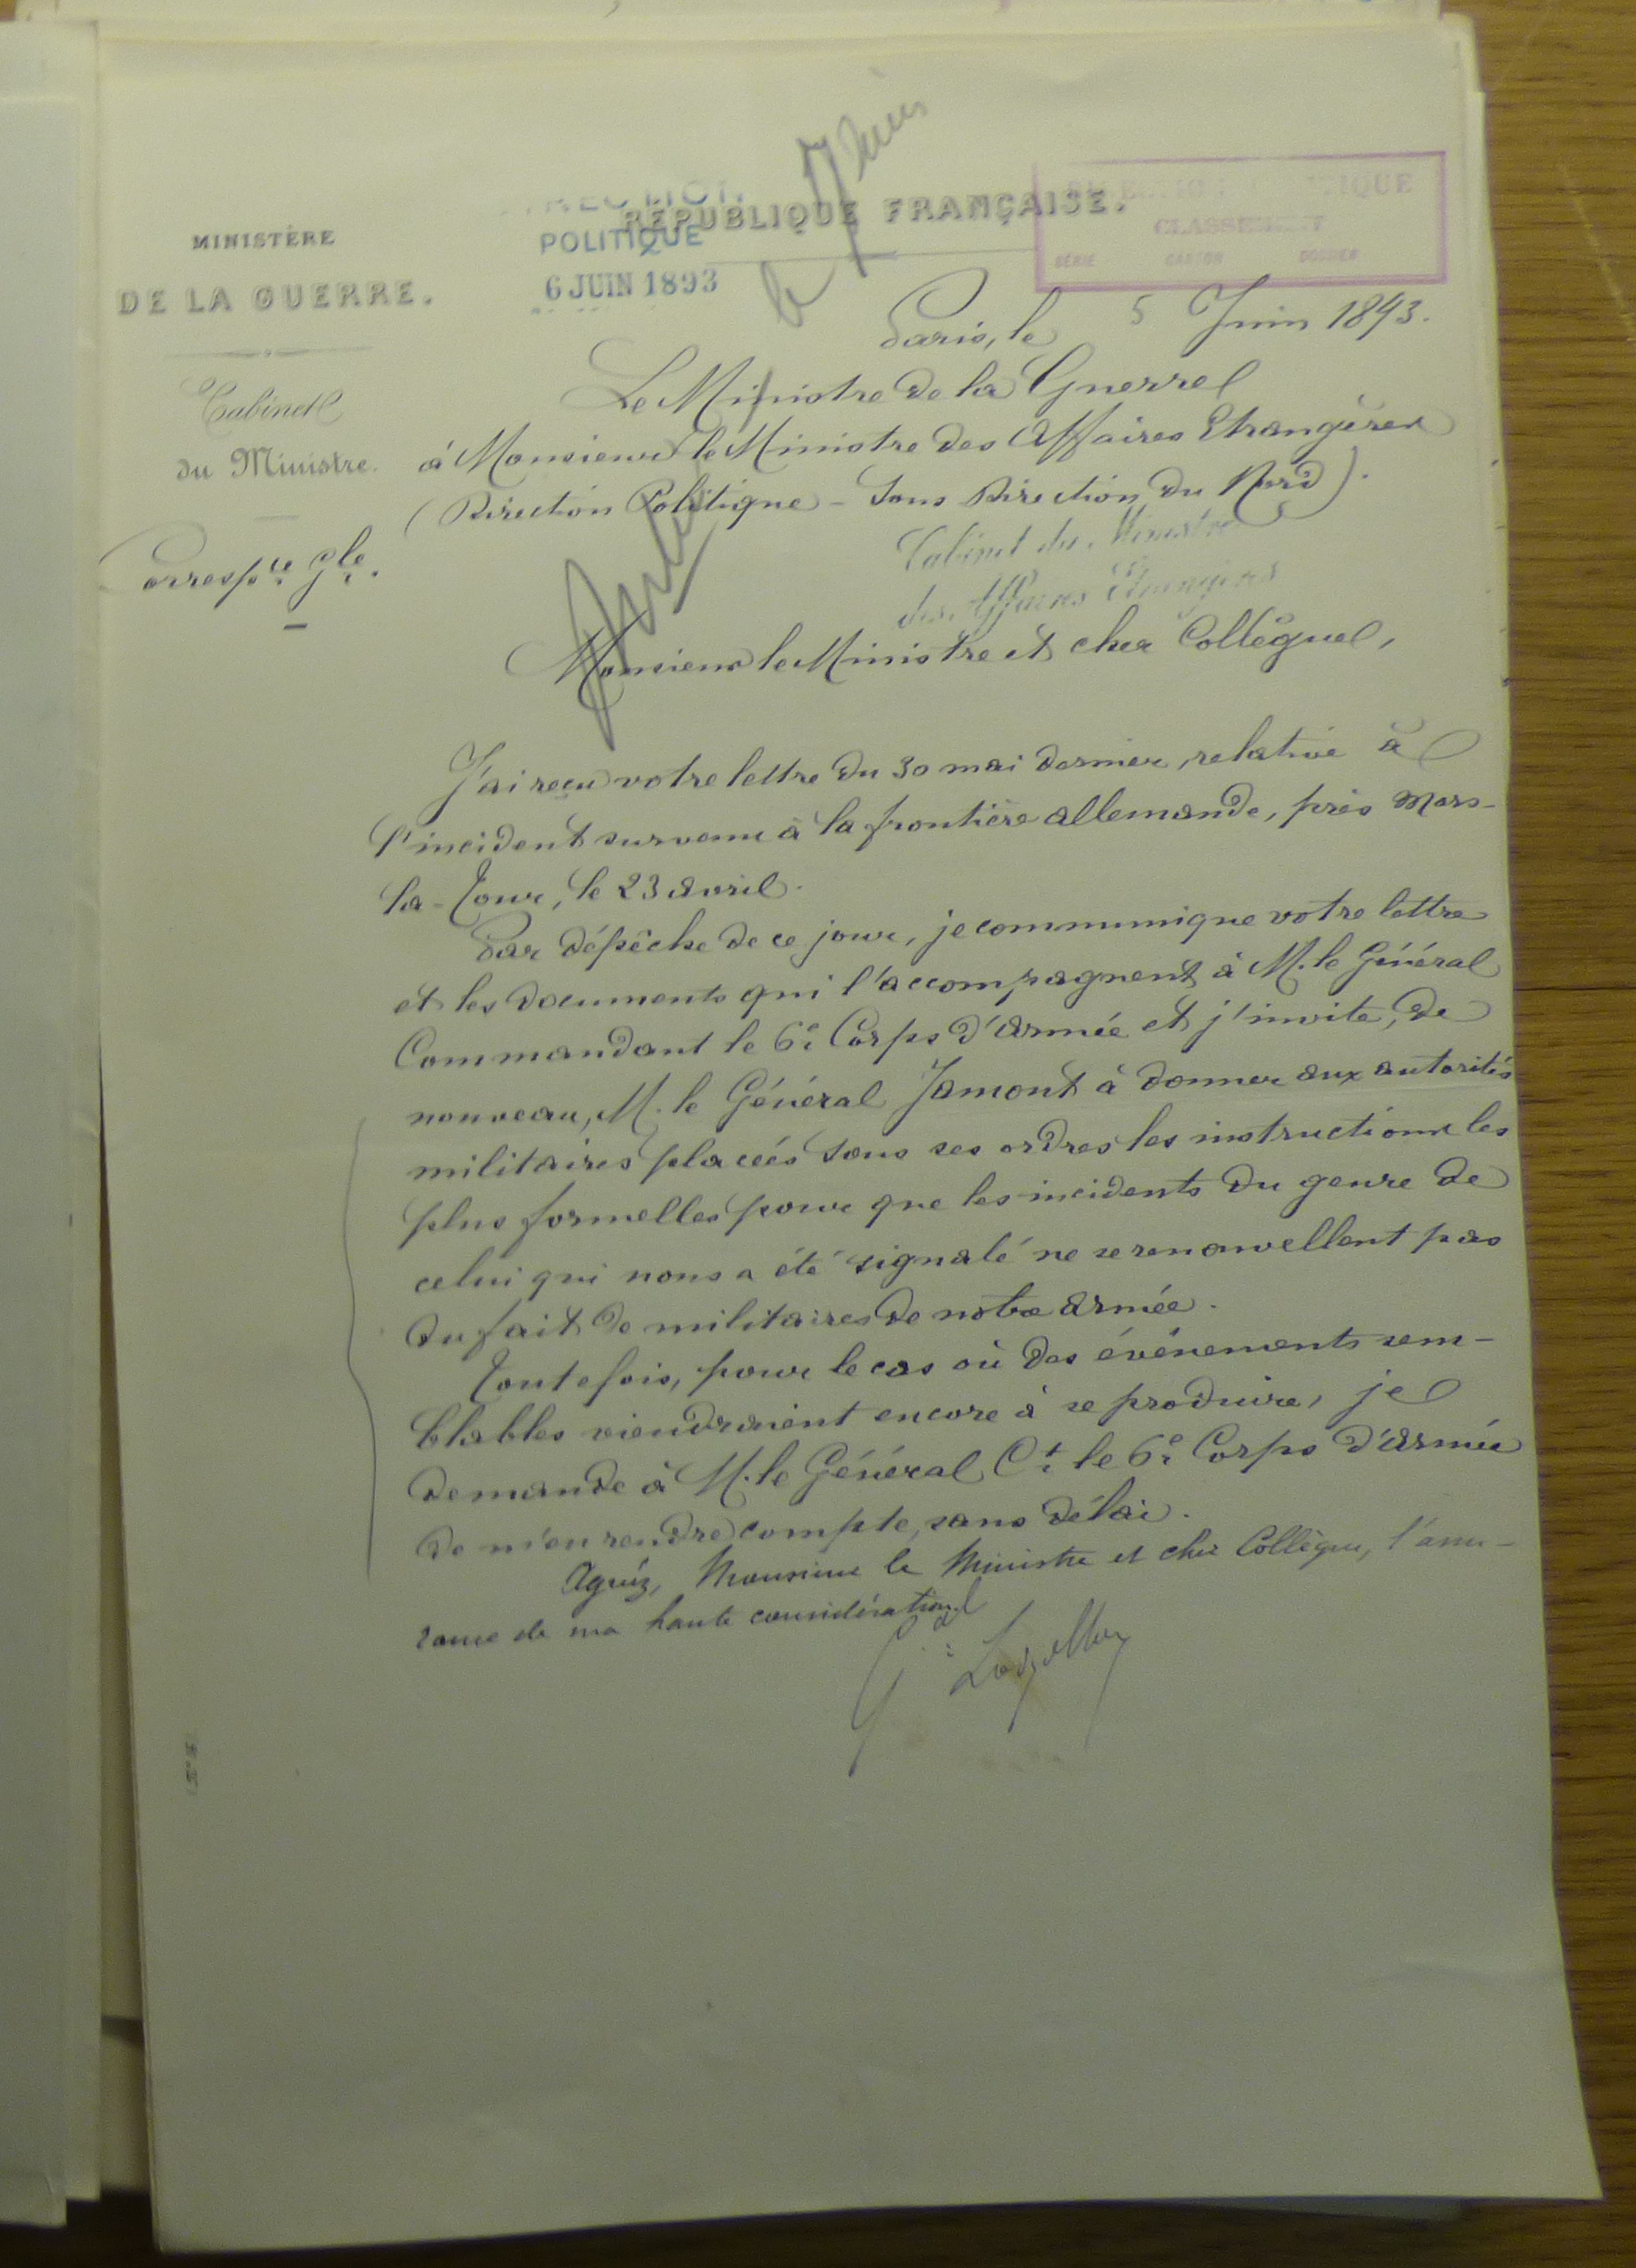 MINISTÈRE
DE LA GUERRE.
Cabinet
du Ministre.
Corresp.ce G.le.
POLITIQUE
6 JUIN 1893
RÉPUBLIQUE FRANÇAISE.
7 Juin
CLASSEMENT
SÉRIE CARTON DOSSIER
Paris, le 5 Juin 1893.
Le Ministre de la Guerre
à Monsieur le Ministre des Affaires Etrangères
(Direction Politique - Sous Direction du Nord).
Cabinet du Ministre
des Affaires Étrangères
Monsieur le Ministre et cher Collègue,
J'ai reçu votre lettre du 30 mai dernier, relative à
l'incident survenu à la frontière allemande, près Mars-
la-Tour, le 23 avril.
Par dépêche de ce jour, je communique votre lettre
et les documents qui l'accompagnent à M. le Général
Commandant le 6e Corps d'armée et j'invite, de
nouveau, M. le Général Jamont à donner aux autorités
militaires placées sous ses ordres les instructions les
plus formelles pour que les incidents du genre de
celui qui nous a été signalé ne se renouvellent pas
du fait de militaires de notre armée.
Toutefois, pour le cas où des événements sem-
blables viendraient encore à se produire, je
demande à M. le Général Ct le 6e Corps d'armée
de m'en rendre compte, sans délai.
Agréez, Monsieur le Ministre et cher Collègue, l'assu-
rance de ma haute considération
Gal Loizillon